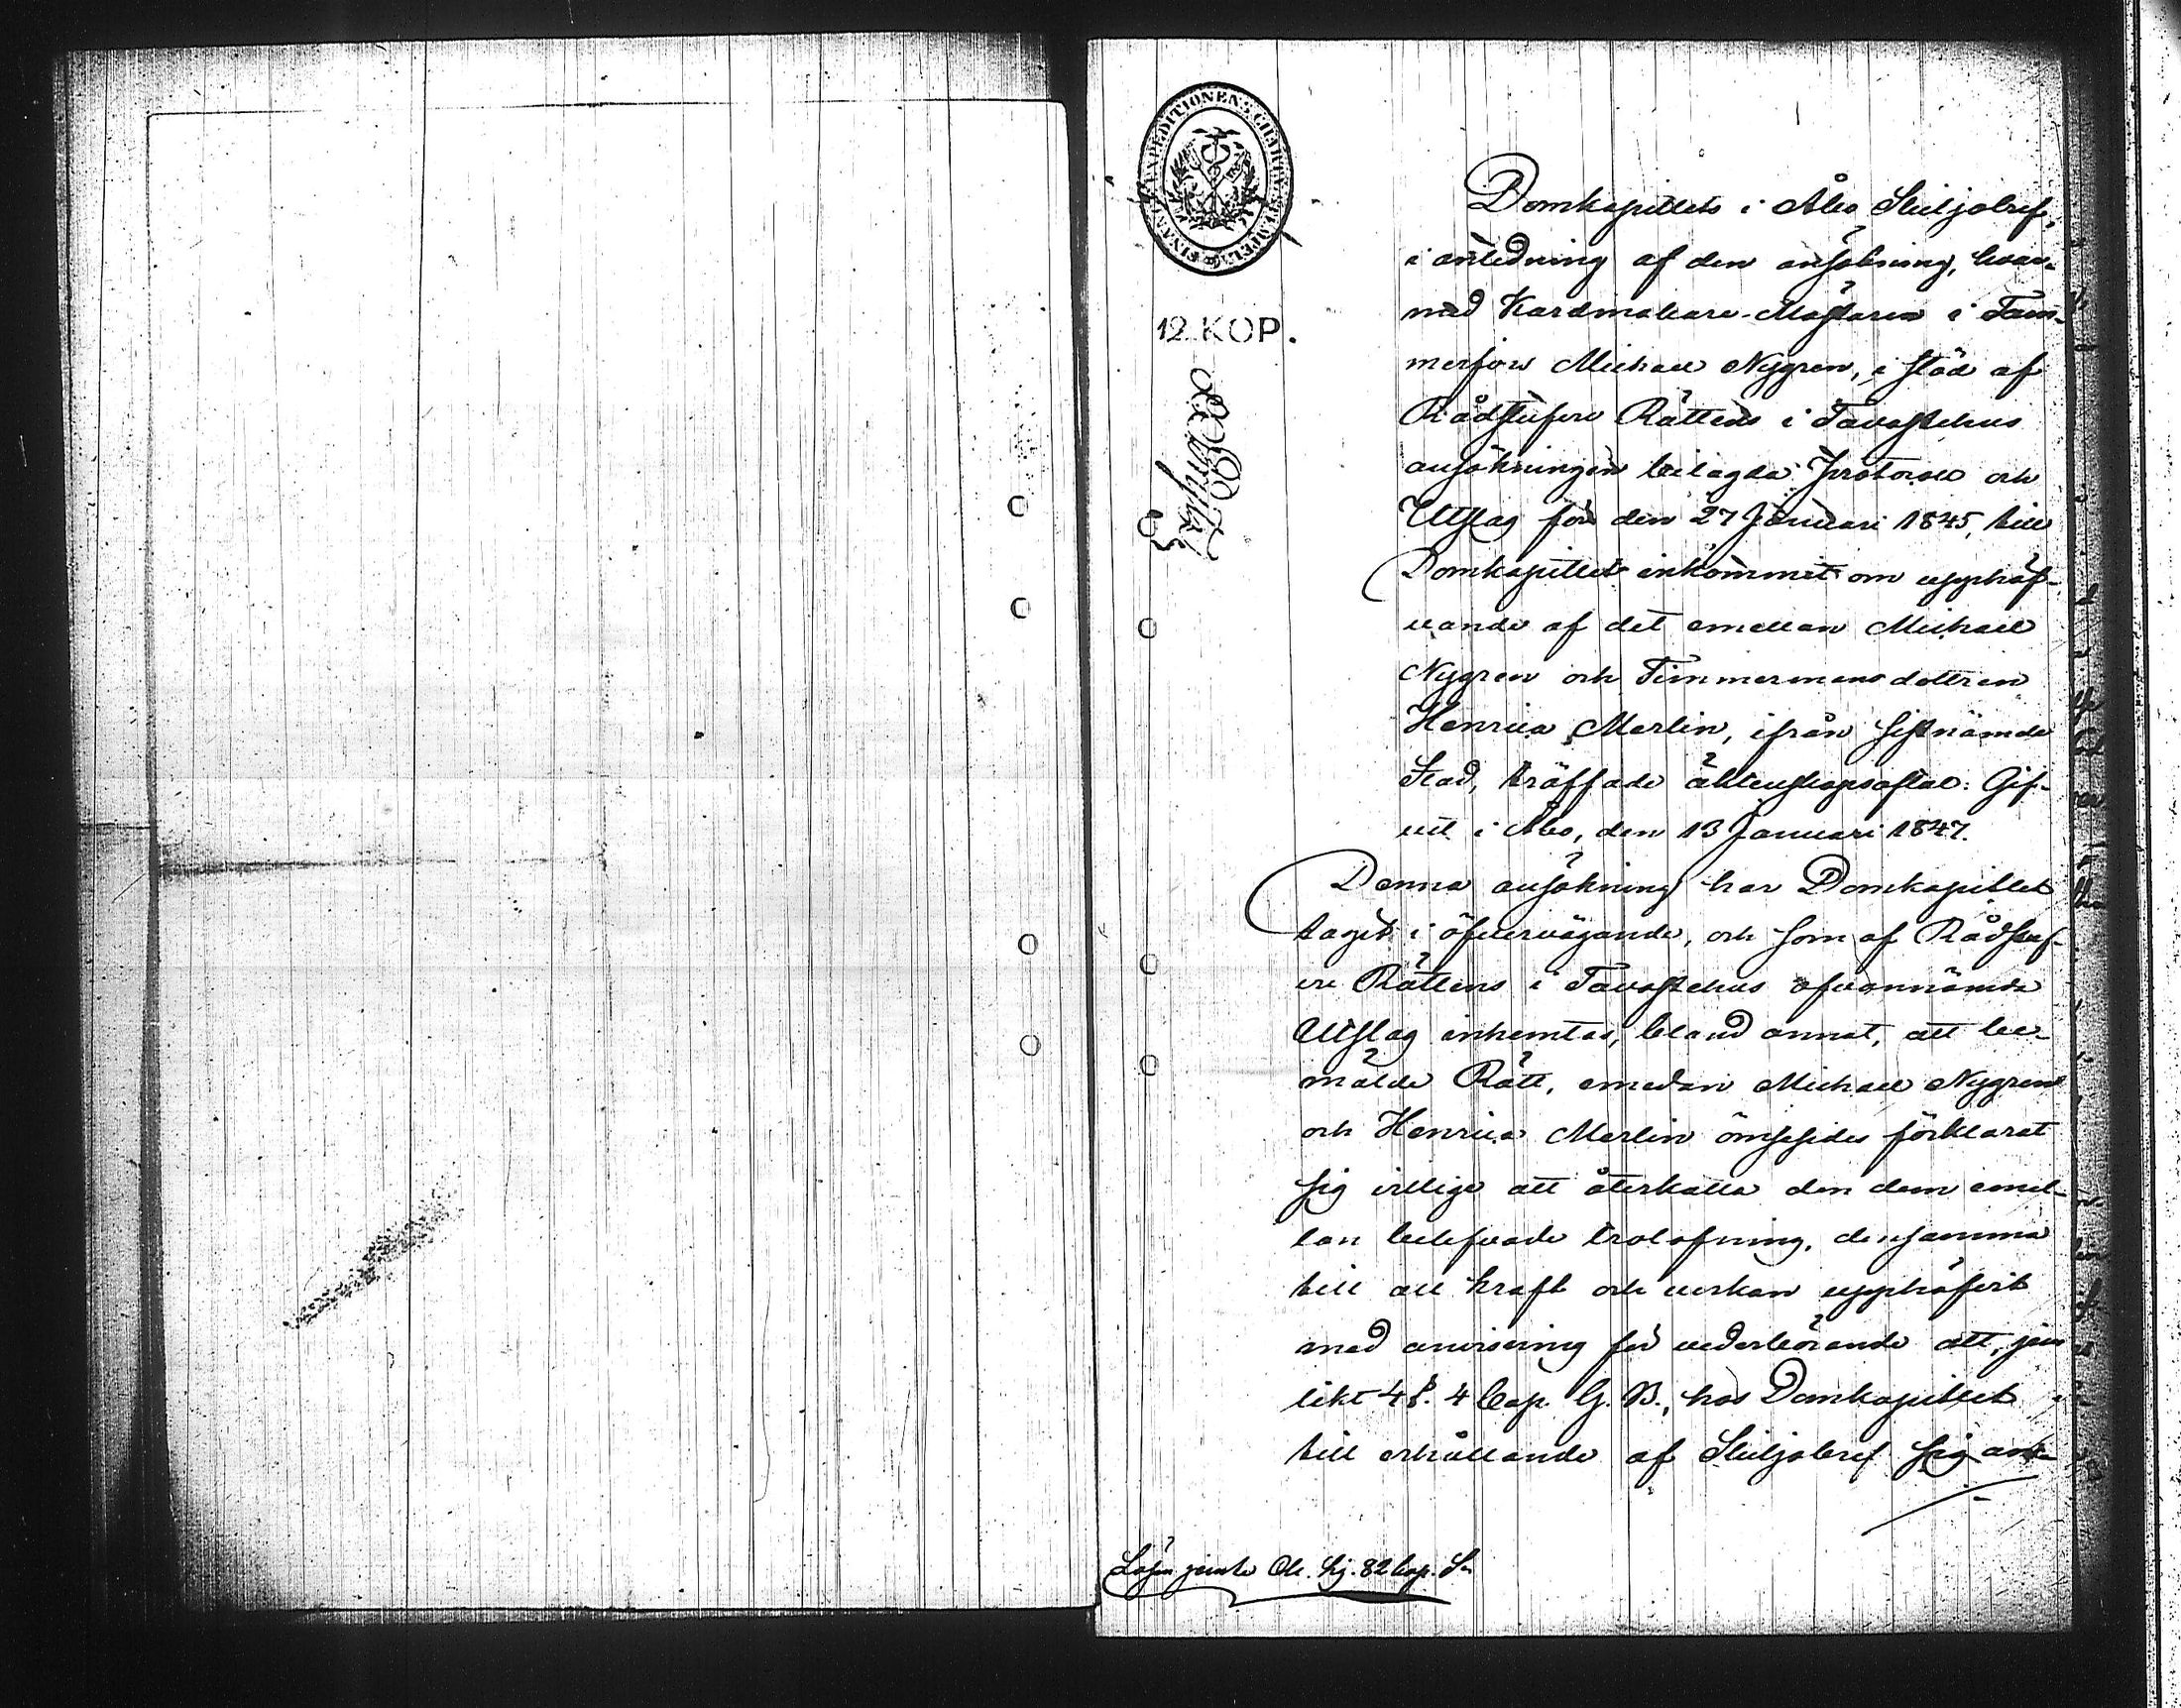 FINANS EXPEDITIONENS CHARTÆ
12 KOP.
Domkapitlets i Åbo Skiljobref,
i anledning af den ansökning, hvar-
med Kardmakare-Mästaren i Tam-
merfors Michael Nygren, i stöd af
Rådstufvu Rättens i Tavastehus
ansökningen bilagda Protocoll och
Utslag för den 27 Januari 1845, till
Domkapitlet inkommit om upphäf-
vande af det emellan Michael
Nygren och Timmermansdottren
Henrica Merlin, ifrån sistnämde
Stad, träffade äktenskapsaftal: Gif-
vit i Åbo, den 13 Januari 1847.
Denna ansökning har Domkapitlet
tagit i öfvervägande, och som af Rådstuf-
vu Rättens i Tavastehus ofvannämde
Utslag inhemtas, bland annat, att be-
mälde Rätt, emedan Michael Nygren
och Henrica Merlin ömsesides förklarat
sig villige att återkalla den dem emel-
lan belefvade trolofning, densamma
till all kraft och verkan upphäfvit
med anvisning för vederbörande att, jem
likt 4 §. 4 Cap. G. B., hos Domkapitlet
till erhållande af Skiljobref sig an-
Lösen jemte Ch. Sig. 82 kop. Sr